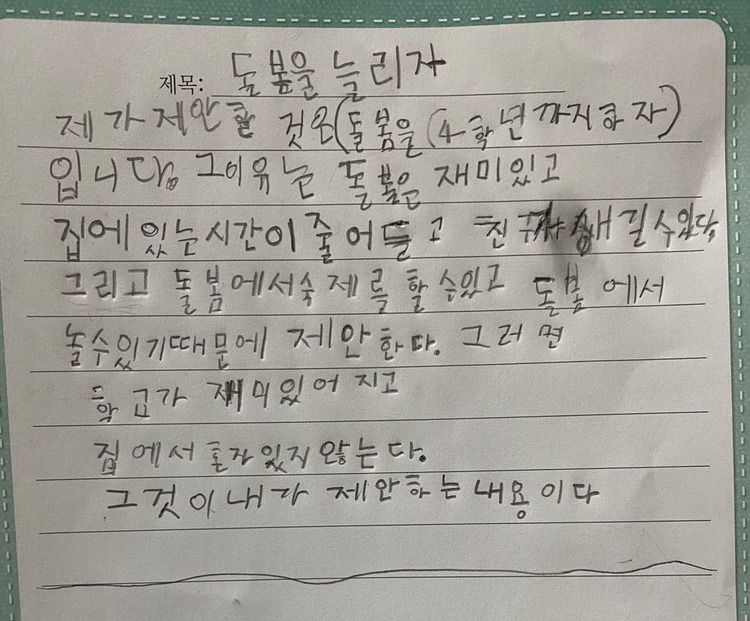 제목: 돌봄을 늘리자
제가 제안할 것은(돌봄을 (4학년까지하자)
입니다. 그이유는 돌봄은 재미있고
집에 있는시간이 줄어들고 친구가 생길수있다.
그리고 돌봄에서숙제를 할수있고 돌봄에서
놀수있기때문에 제안한다. 그러면
학교가 재미있어 지고
집에서 혼자있지 않는다.
그것이 내가 제안하는 내용이다